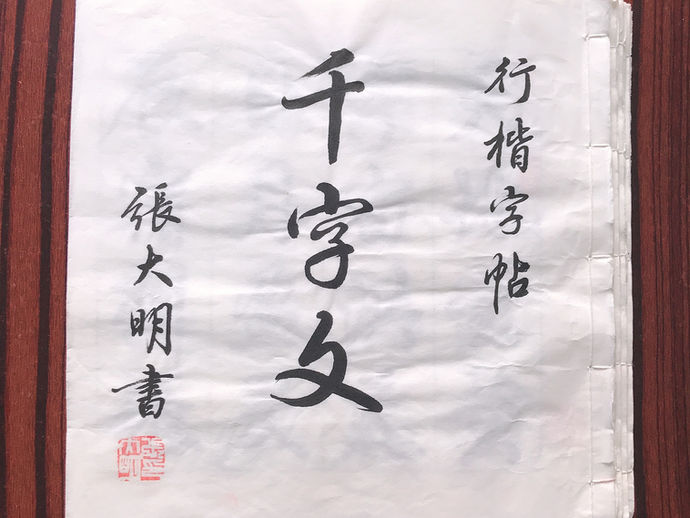 行楷字帖
千字文
張大明書